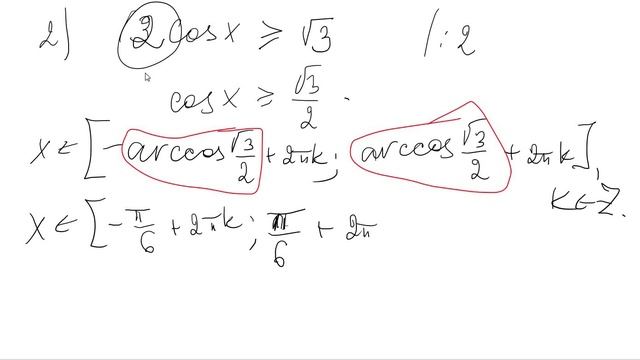 2) 2cos x ≥ √3 /:2
cos x ≥ √3/2 .
x ∈ [-arccos √3/2 + 2πk; arccos √3/2 + 2πk], k ∈ Z.
x ∈ [-π/6 + 2πk; π/6 + 2π